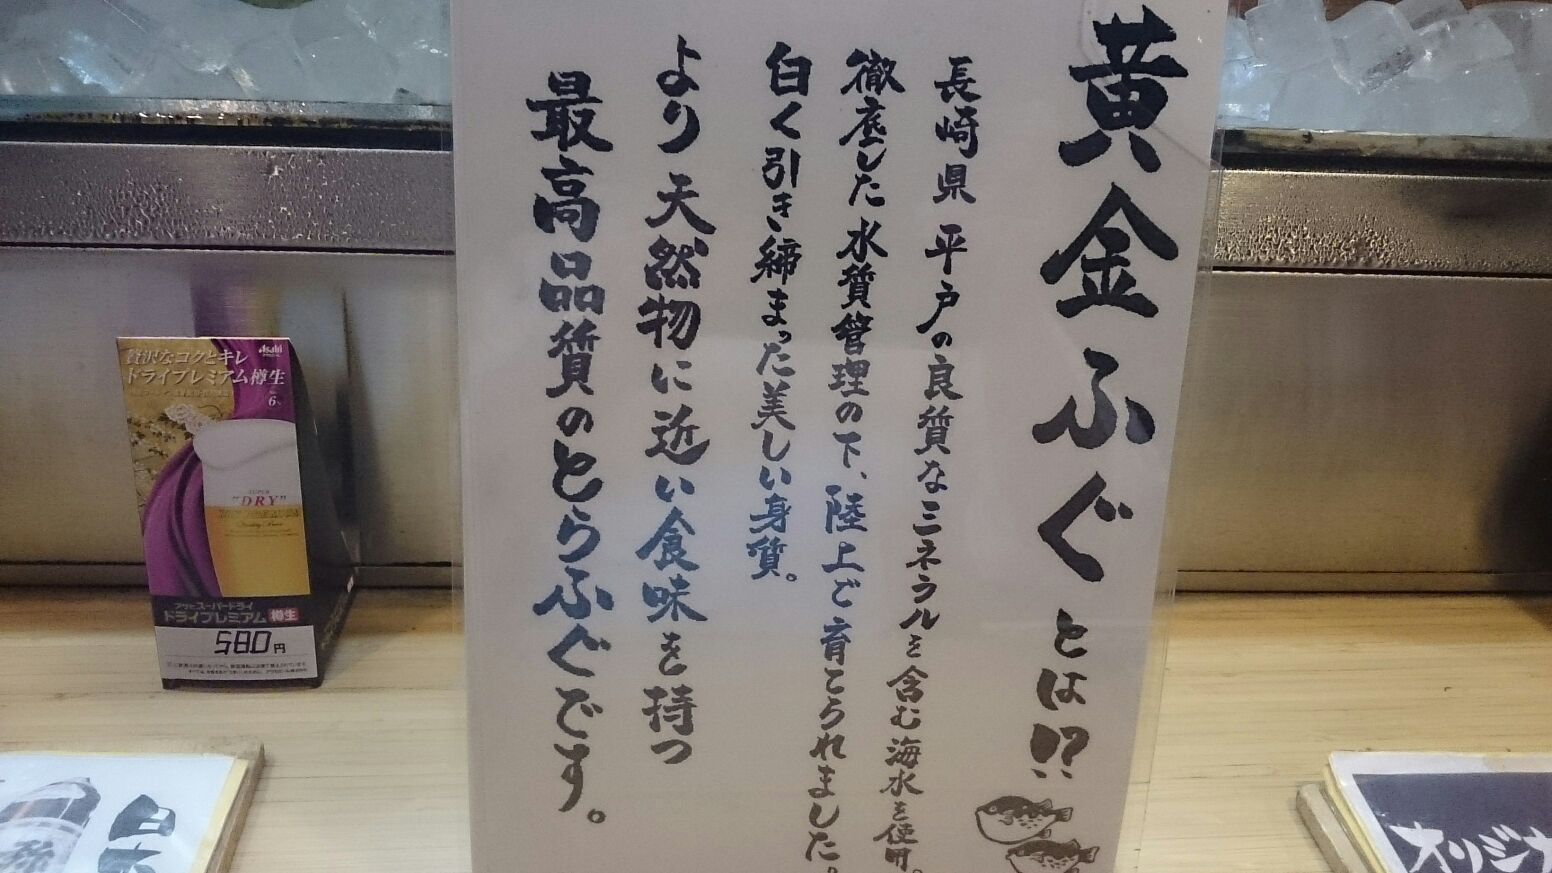 黄金ふぐとは!?
長崎県 平戸の良質なミネラルを含む海水を使用。
徹底した水質管理の下、陸上で育てられました。
白く引き締まった美しい身質。
より天然物に近い食味を持つ
最高品質のとらふぐです。
Asahi
贅沢なコクとキレ
ドライプレミアム樽生
6%
SUPER
"DRY"
アサヒスーパードライ
ドライプレミアム 樽生
580円
日本
オリジナ